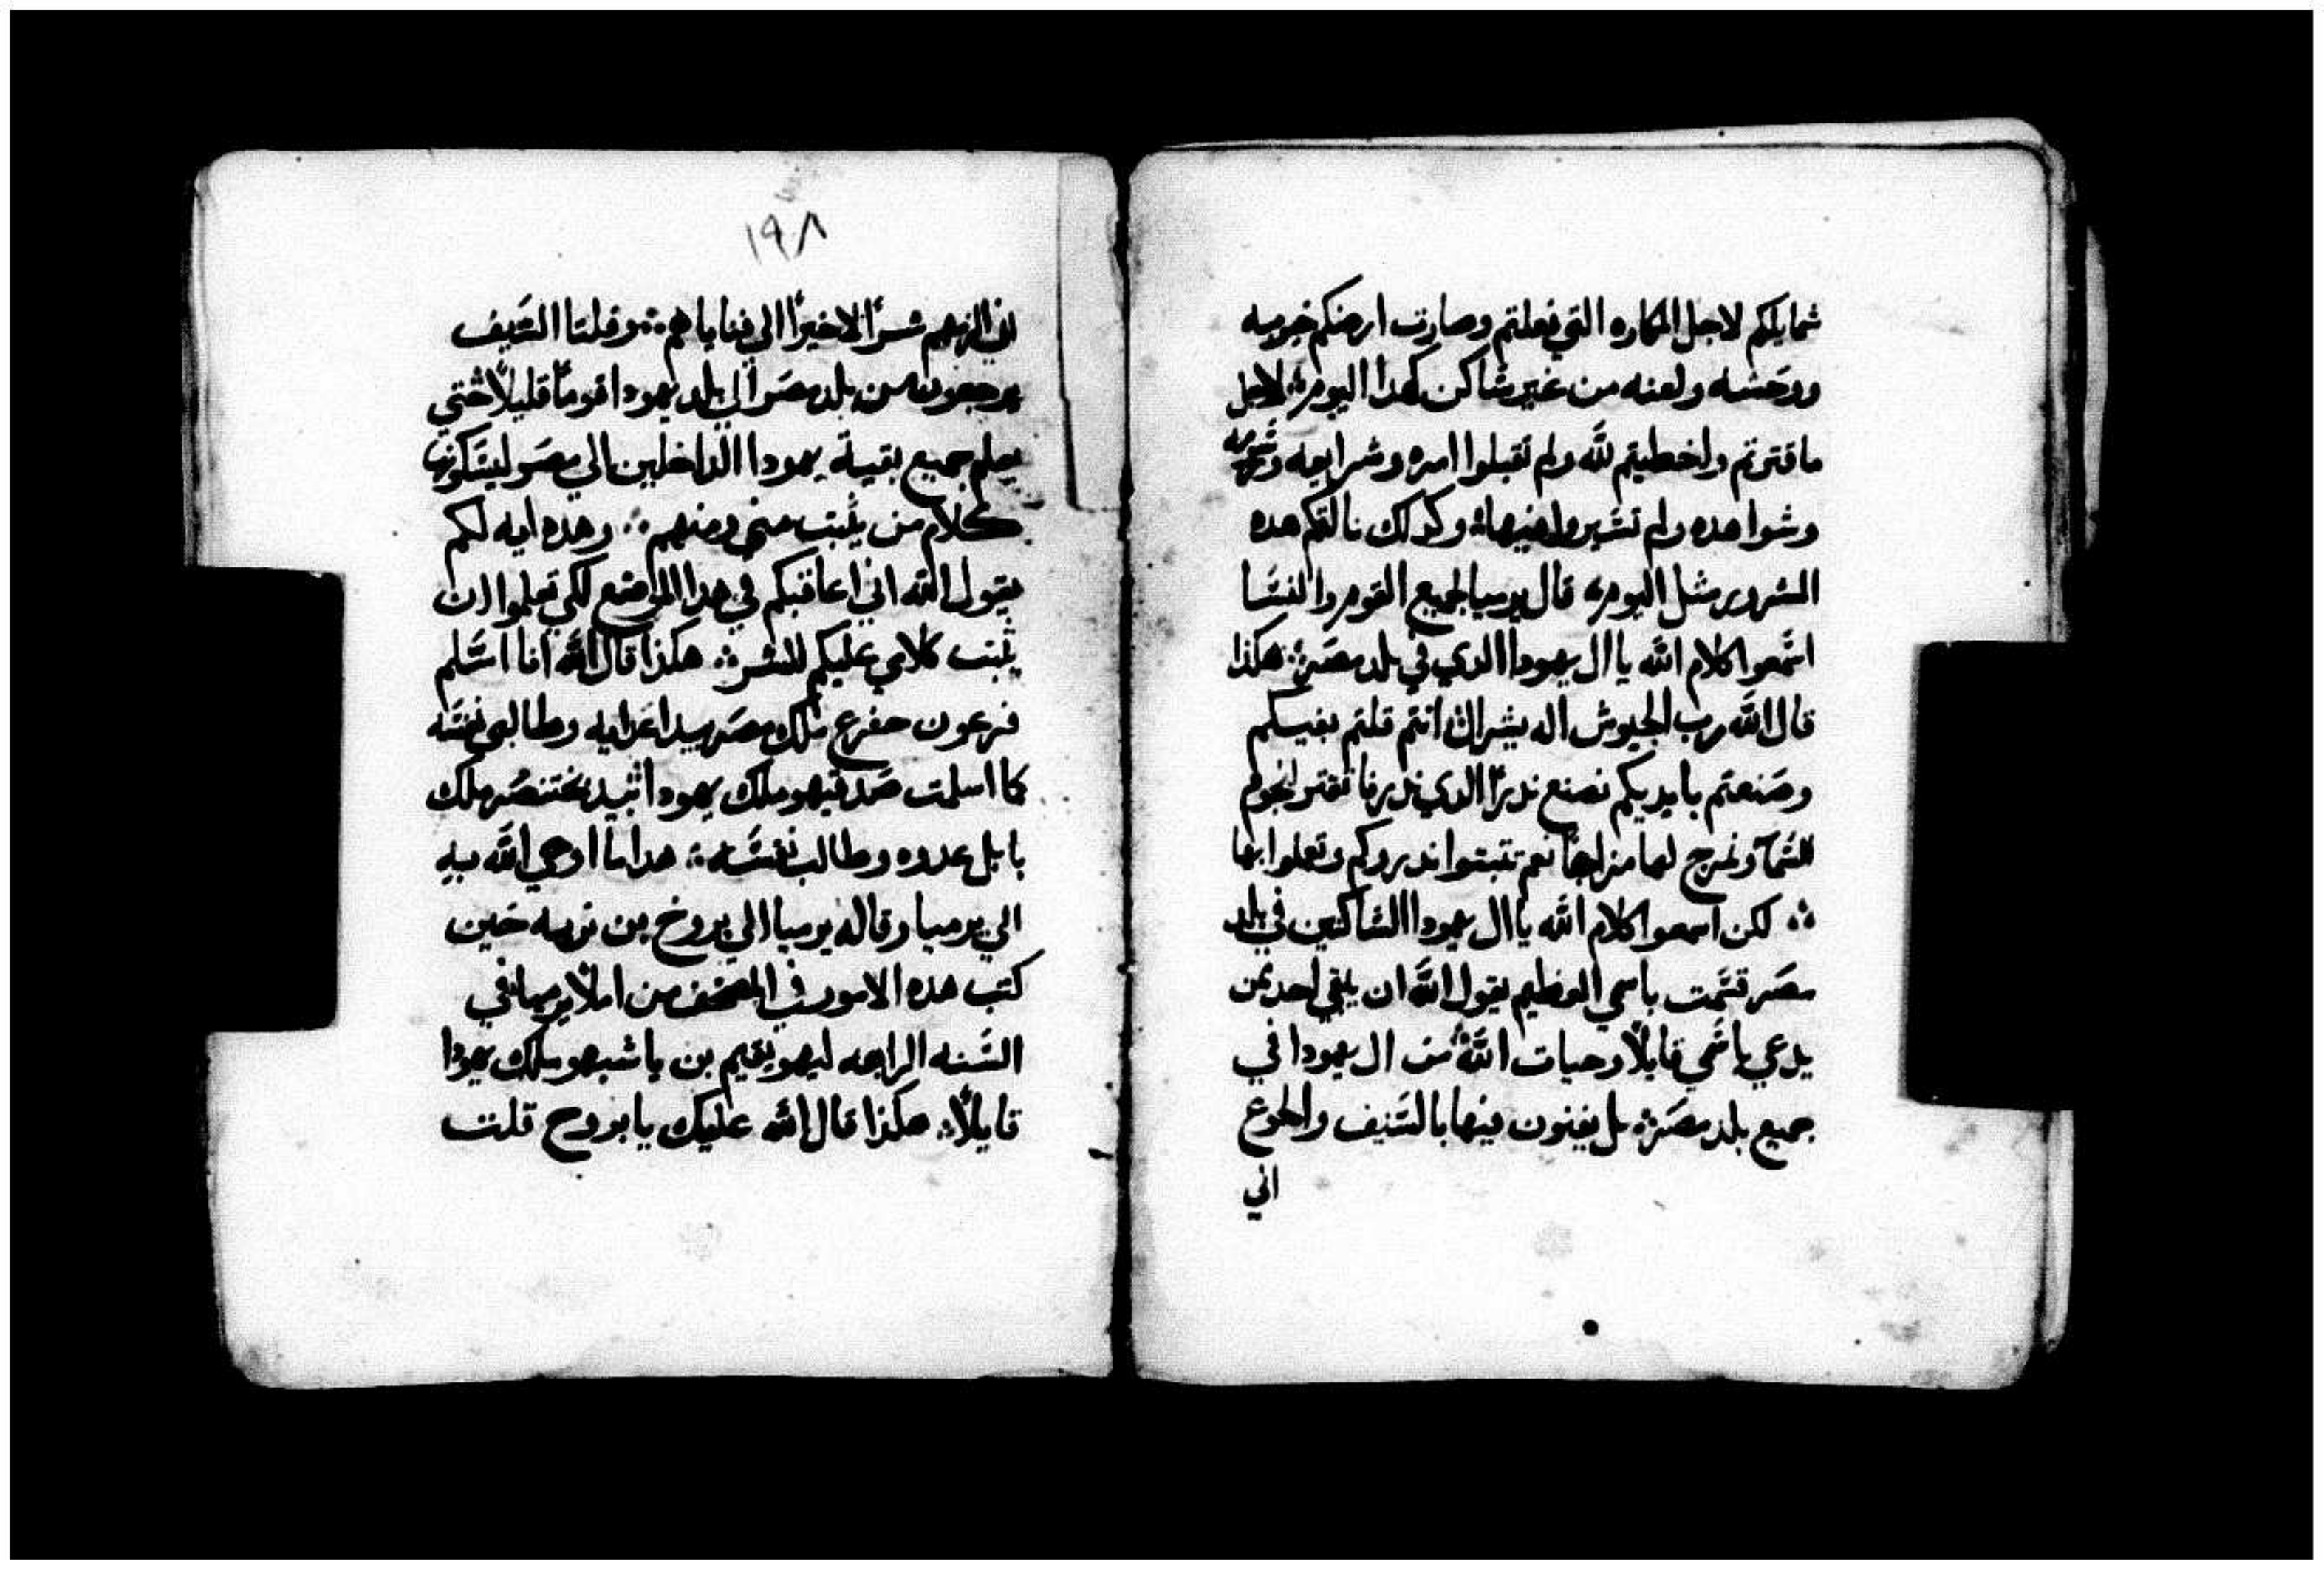 شمايلكم لاجل المكاره التي فعلتم وصارت ارضكم خربه
ووحشه ولعنه من غير ساكن كهدا اليوم لاجل
ما قترتم واخطيتم لله ولم تقبلوا امره وشرايعه
وشواهده ولم تسيروا فيها وكدلك نالتكم هده
الشرور مثل اليوم قال يرميا لجميع القوم والنسا
اسمعوا كلام الله يا ال يهودا الدي في بلد مصر هكذا
قال الله رب الجيوش اله يشرال انتم قلتم بفيكم
وصنعتم بايديكم نصنع ندرًا الدي ندرنا نقتر لنجوم
السما ونمزج لها مزاجًا نعم تتبتوا ندروكم وتعلوا بها
لكن اسمعوا كلام الله يا ال يهودا الساكنين في بلد
مصر قسمت باسمي العظيم يقول الله ان بقي احد من
يدعي باسمي قايلًا وحيات الله من ال يهودا في
جميع بلد مصر بل يفنون فيها بالسيف والجوع
اني
١٩٨
اني الزمهم شرًا لا خيرًا الي فناياهم وفلتا السيف
يرجعون من بلد مصر الي بلد يهودا قومًا قليلًا حتي
يعلم جميع بقية يهودا الداخلين الي مصر ليسكونها
كلام من يثبت مني ومنهم وهده ايه لكم
يقول الله اني اعاقبكم في هدا الموضع لكي تعلموا ان
يثبت كلامي عليكم للشر هكذا قال الله انا اسلم
فرعون حفرع ملك مصر بيد اعدايه وطالبي نفسه
كما اسلمت صدقيهو ملك يهودا بيد بختنصر ملك
بابل عدوه وطالب نفسه هدا ما اوحي الله به
الي يرميا وقاله يرميا الي بروخ بن نريه حين
كتب هده الامور في المصحف من املا يرميا في
السنه الرابعه ليهويقيم بن ياشيهو ملك يهودا
قايلًا هكذا قال الله عليك يا بروح قلت